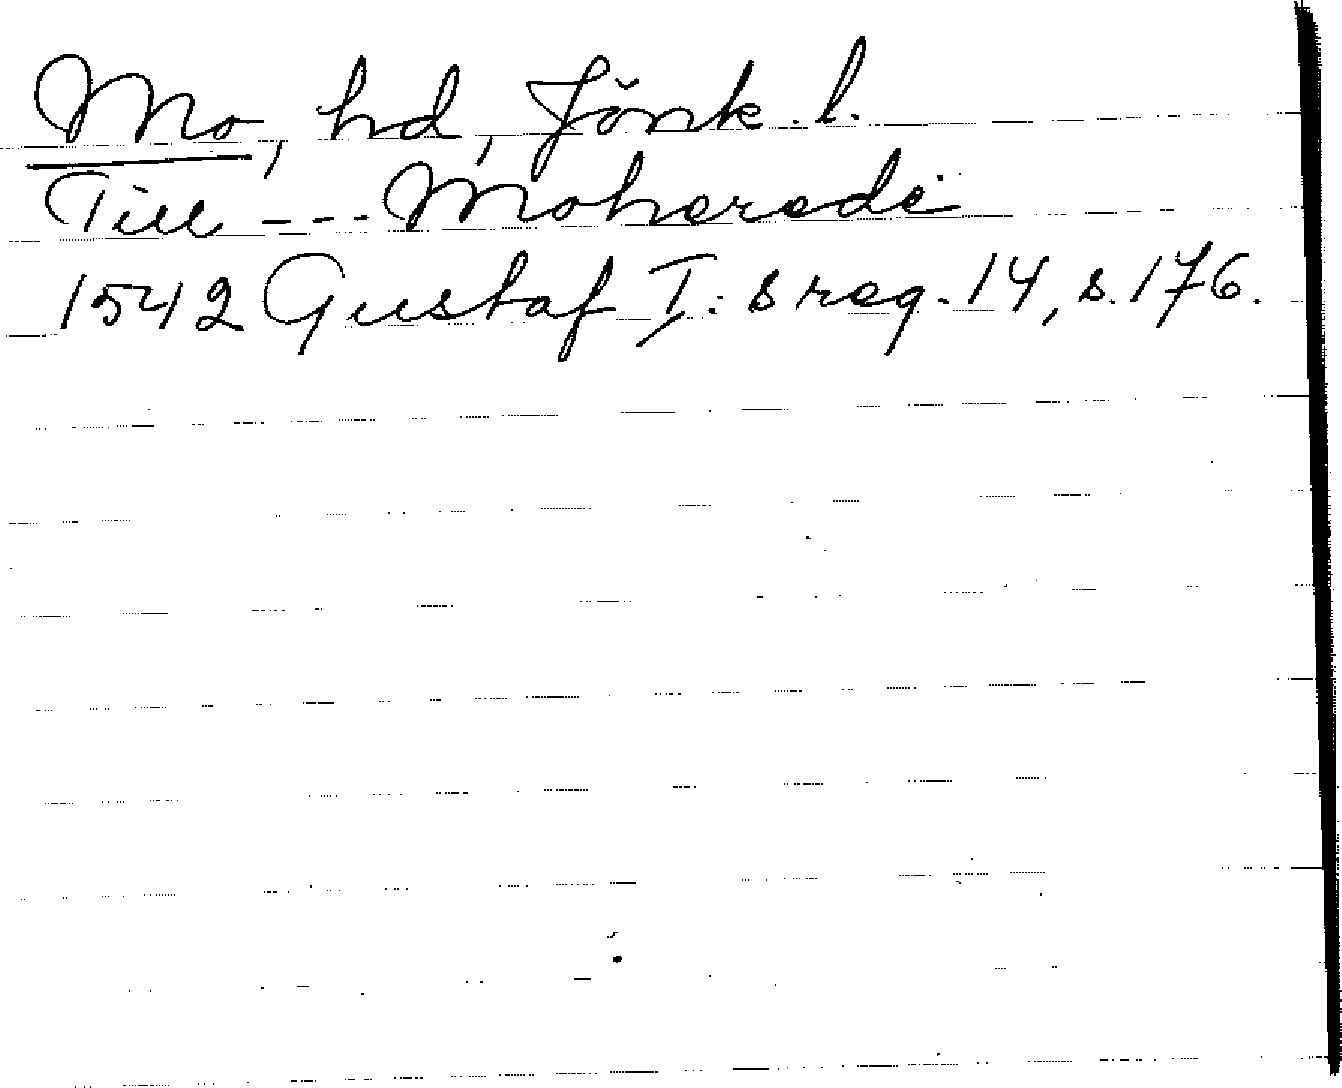 Mo, hd, Jönk. l.
Till --- Moheredi
1542 Gustaf I:s reg. 14, s. 176.